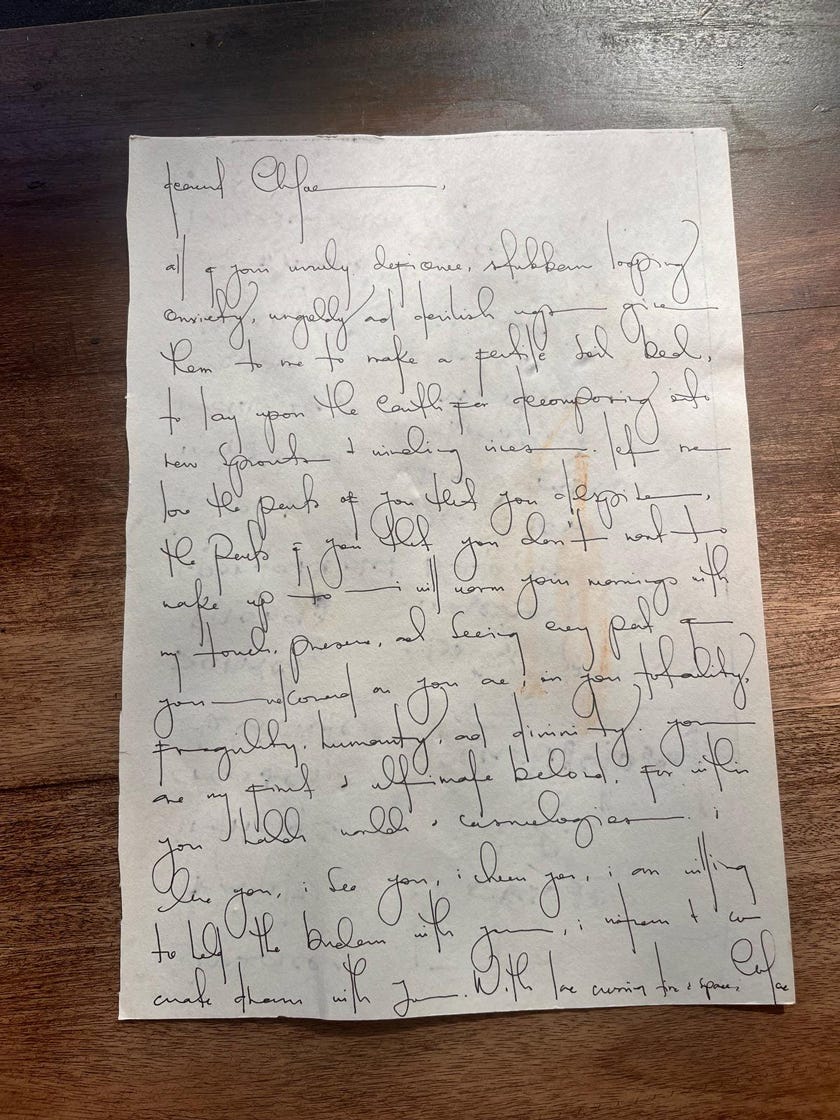 dearest Chloe,
all of your unruly defiance, stubborn looping
anxiety, ungodly and devilish urges give
them to me to make a fertile soil bed,
to lay upon the earth for decomposing into
new sprouts & winding vines. let me
love the parts of you that you despise,
the parts of you that you don't want to
wake up to — i will warm your mornings with
my touch, presence, and seeing every part of
you — as you are, in your totality,
fragility, humanity, and divinity. you
are my first & ultimate beloved. for within
you holds worlds & cosmologies. i
love you, i see you, i you, i am willing
to hold the burdens with you, i &
create dreams with you. With love across time & space, Chloe